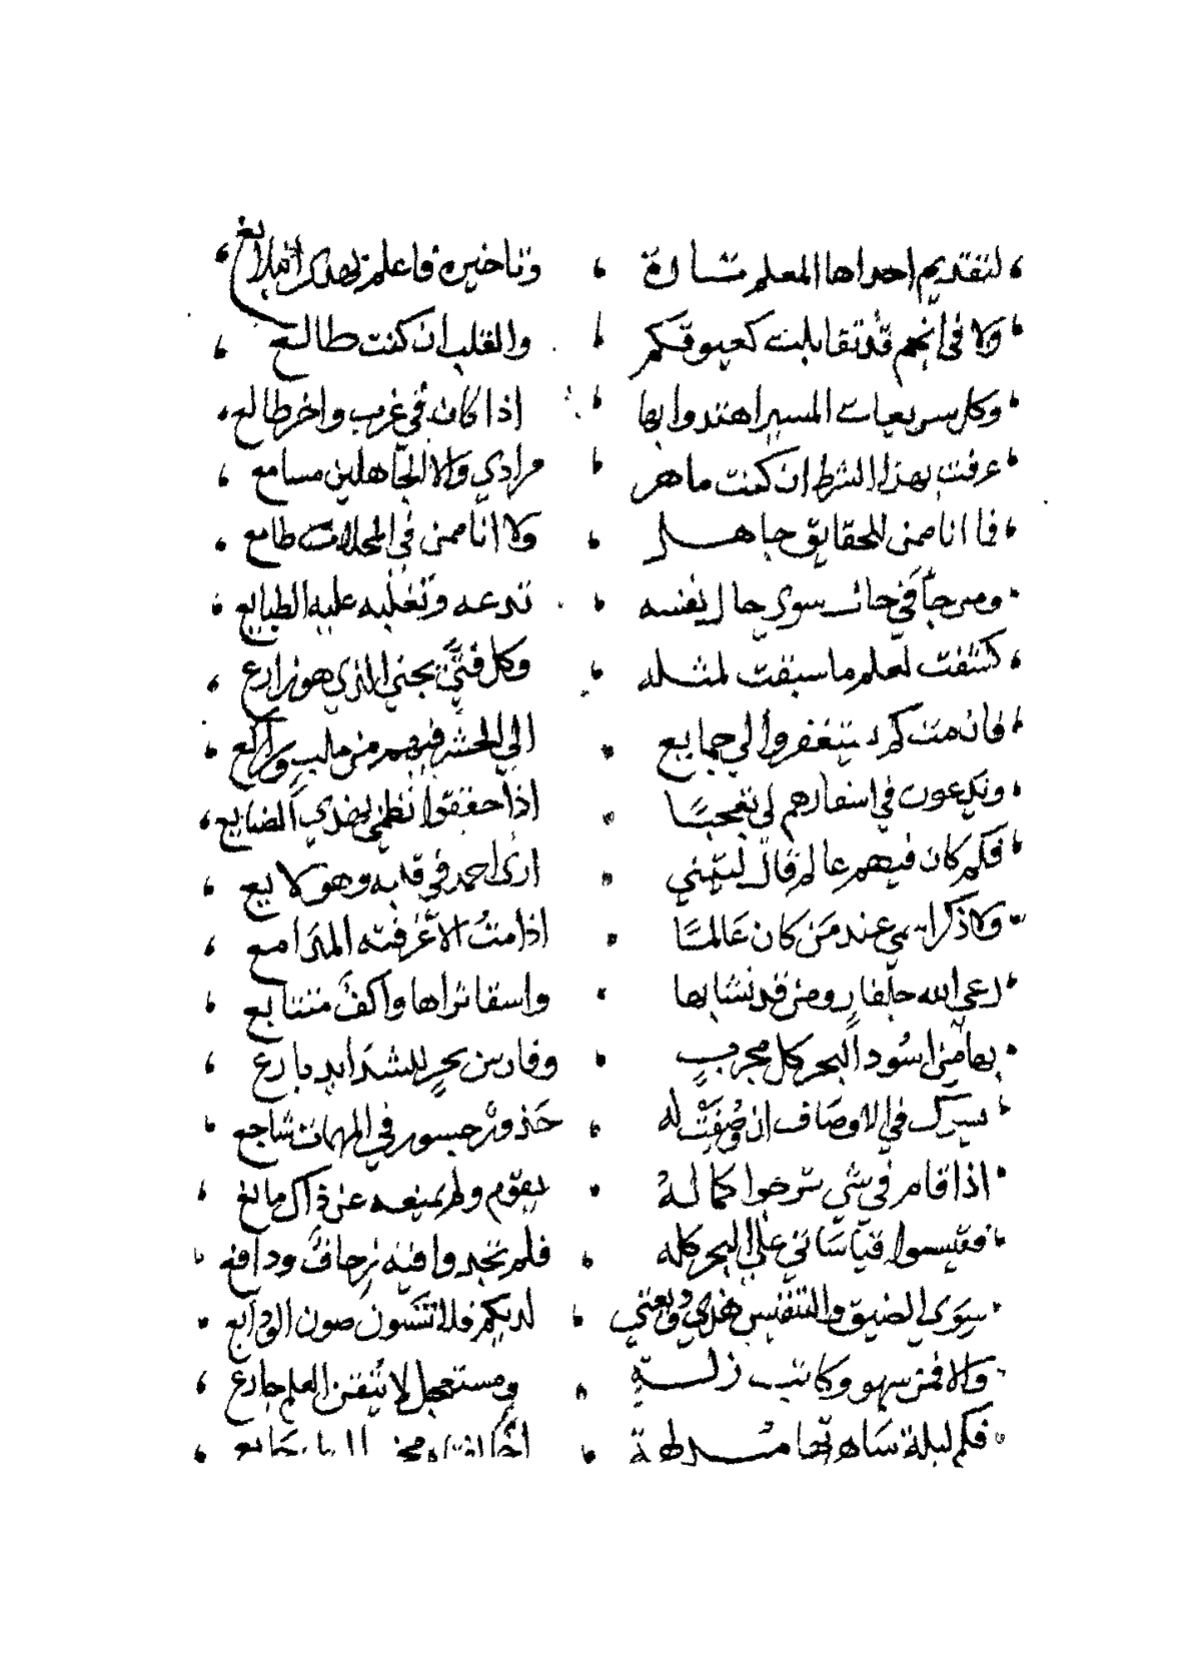 لتقديم احداها المعلم شارة وتاخيره فاعلم بهذا
ولا في انجم قد تقابلت كعيوقكم والقلب ان كنت طالع
وكل سريعات المسير اهتدوا بها اذا كان في غرب واخر طالع
عرفت بهذا الشرط ان كنت ماهر مرادي والا الجاهلين مسامع
فما انا ممن للحقايق جاهل ولا انا ممن في المحلات طامع
ومن جا في حال سوى حال نفسه تدعه وتغلبه عليه الطبايع
كشفت لعلم ما سبقت لمثله وكل فتًى يجني الذي هو زارع
فان مت كم يستغفروا لي جمايع الى الحشر فيهم من وراكع
ويدعون في اسفارهم لي تعجبًا اذا حققوا نظمي لهذي الضايع
فكم كان فيهم عالم قال ليتني ارى احمد في قلبه وهو لايع
ولا ذكر اسمي عند مَن كان عَالمًا اذا متُ الا غرفته المدامع
رعى الله جلفار ومن قد نشا بها واسقا ثراها واكفٌ متتابع
بها من اسُود البحر كل مجربٍ وفارس بحرٍ للشدايد بارع
يسرك في الاوصاف ان وُصِفَتْ له حَذورٌ جسور في المهمات شاجع
اذا قام في شي ترجوا كماله يقوم ولم يمنعه عن ذاك مانع
فقيسوا قياساتي على البحر كله فلم تجدوا فيه زحافٌ ودافع
سِوَى الضيق والتنفيس هذي وديعتي لديكم فلا تنسون صون الودايع
والا فمن سهو وكاتب زلةٍ ومستعجل لا يُتقن العلم جازع
فكم ليلة سَاهرتها مُدلهمة